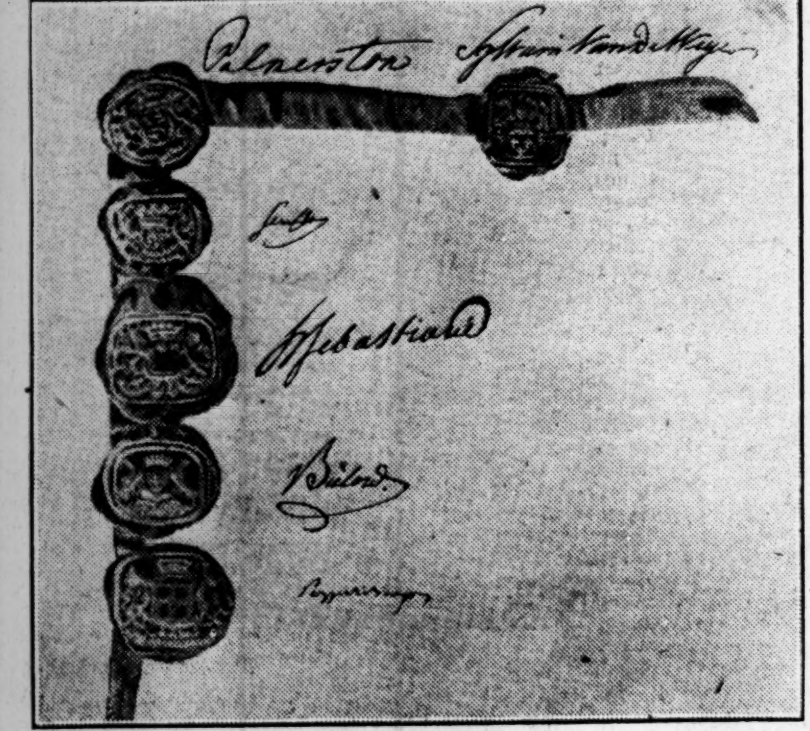 Palmerston Sylvain Van de Weyer
Senfft
H Sebastiani
Bülow.